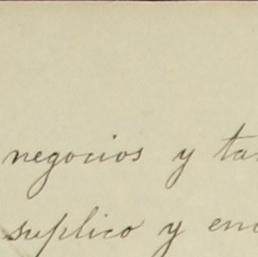 negocios y ta
suplico y en